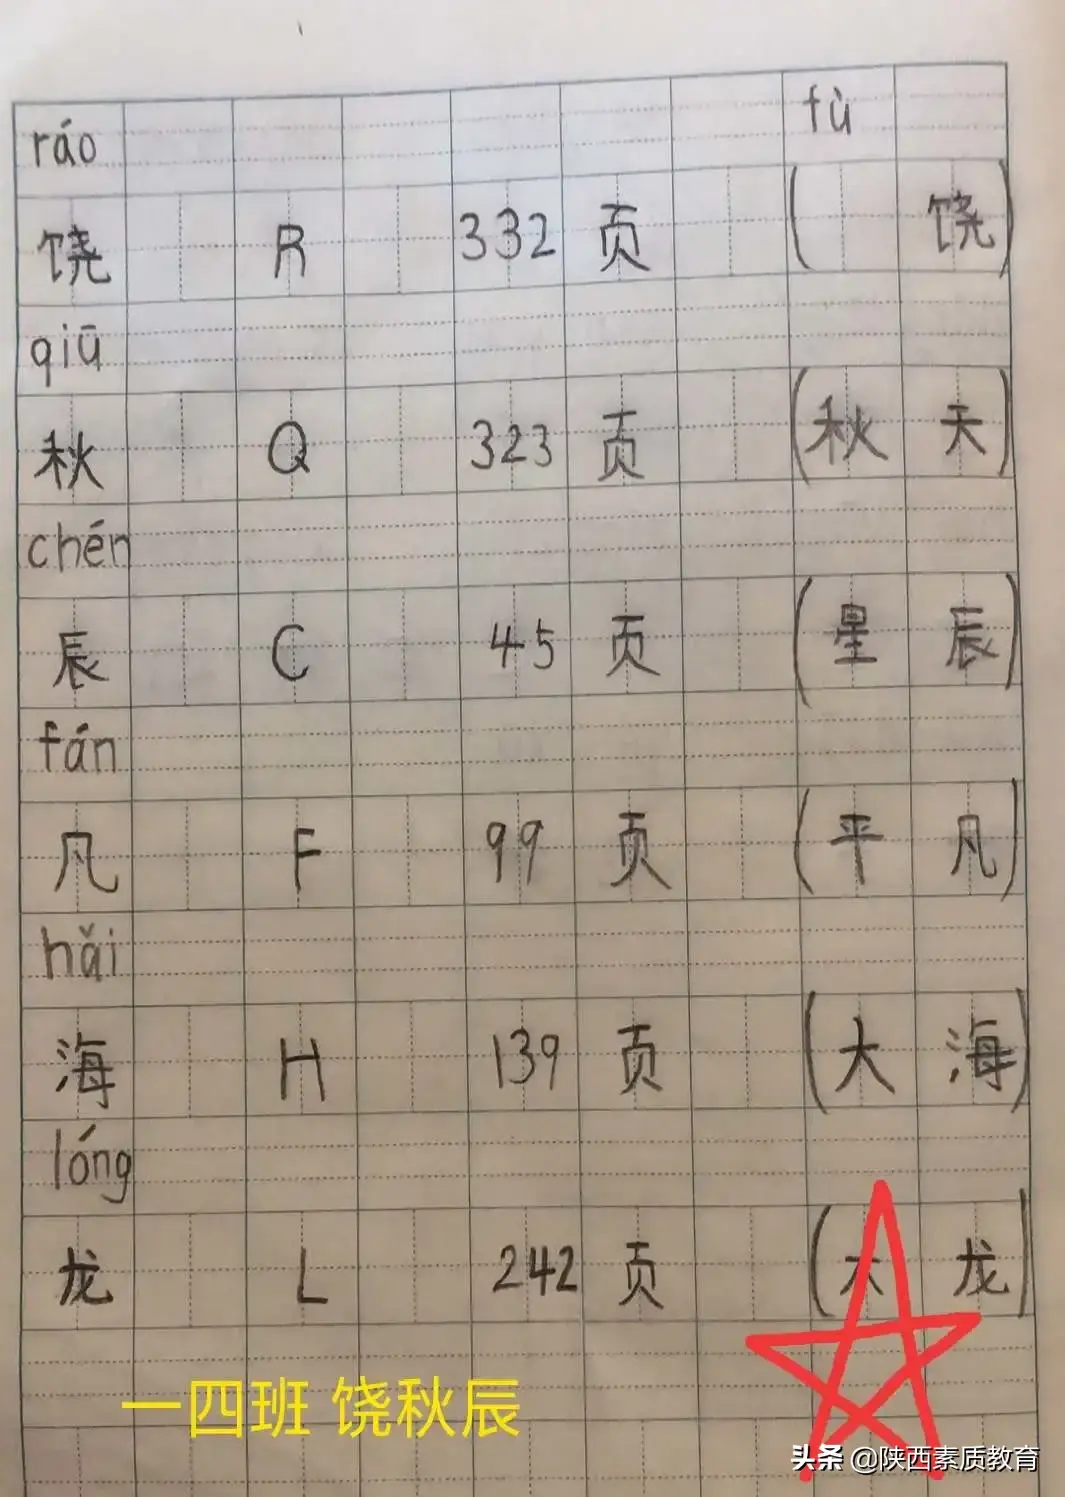 ráo fù
饶 R 332 页 ( 饶)
qiū
秋 Q 323 页 (秋天)
chén
辰 C 45 页 (星辰)
fán
凡 F 99 页 (平凡)
hǎi
海 H 139 页 (大海)
lóng
龙 L 242 页 ( 龙)
一四班 饶秋辰
头条 @陕西素质教育